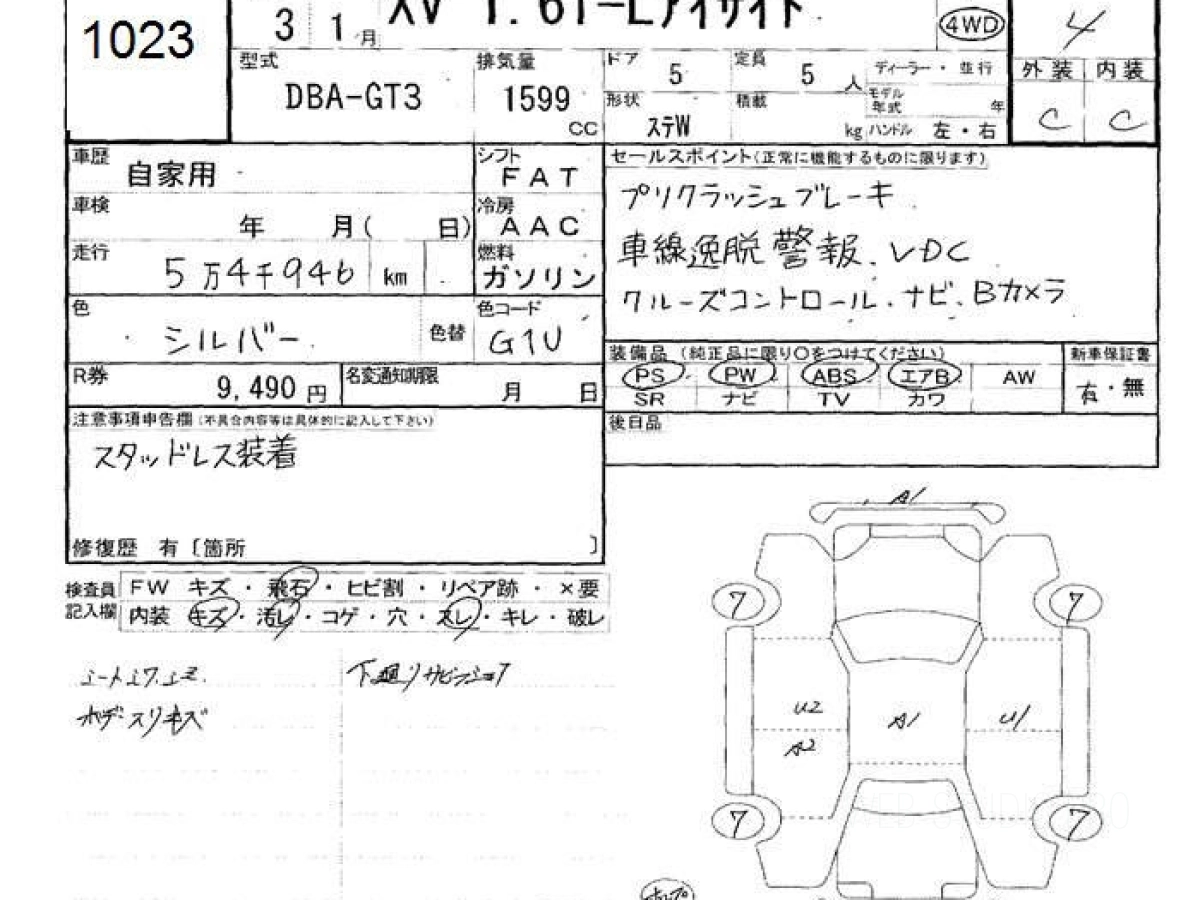 1023
3 1 月
XV 1.6i-Lアイサイト
4WD
4
型式
DBA-GT3
排気量
1599
CC
ドア
5
定員
5 人
ディーラー・並行
形状
ステW
積載
kg
モデル年式
年
ハンドル 左・右
外装 内装
C C
車歴
自家用
シフト
FAT
車検
年 月( 日)
冷房
AAC
走行
5万4千946 km
燃料
ガソリン
色
シルバー
色替
色コード
G1U
R券
9,490 円
名変通知期限
月 日
セールスポイント(正常に機能するものに限ります)
プリクラッシュブレーキ
車線逸脱警報.VDC
クルーズコントロール.ナビ.Bカメラ
装備品(純正品に限り○をつけてください)
PS PW ABS エアB AW
SR ナビ TV カワ
新車保証書
有・無
後日品
注意事項申告欄(不具合内容等は具体的に記入して下さい)
スタッドレス装着
修復歴 有〔箇所 〕
検査員
記入欄
FW キズ・飛石・ヒビ割・リペア跡・×要
内装 キズ・汚レ・コゲ・穴・スレ・キレ・破レ
下廻りサビ
A1
7 7
U2 A1 U1
A2
7 7